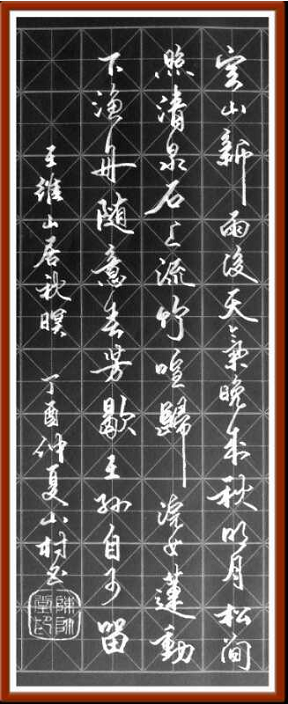 空山新雨後天氣晚来秋明月松间
照清泉石上流竹喧歸浣女蓮動
下漁舟随意春芳歇王孙自可留
王維山居秋暝 丁酉仲夏山村书